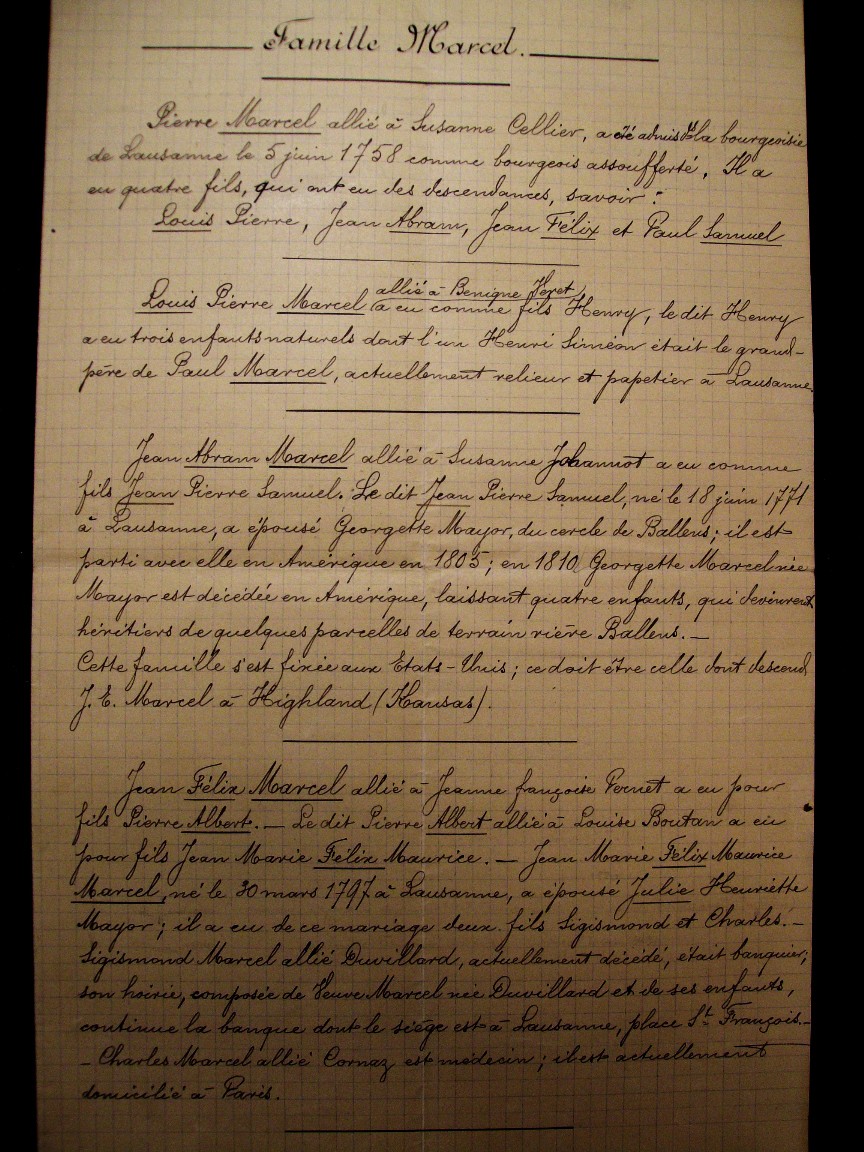 Famille Marcel.
Pierre Marcel allié à Susanne Cellier, a été admis à la bourgeoisie
de Lausanne le 5 juin 1758 comme bourgeois assoufferté. Il a
eu quatre fils, qui ont eu des descendances, savoir :
Louis Pierre, Jean Abram, Jean Félix et Paul Samuel
allié à Benigne
Louis Pierre Marcel a eu comme fils Henry, le dit Henry
a eu trois enfants naturels dont l'un Henri Siméon était le grand-
père de Paul Marcel, actuellement relieur et papetier à Lausanne.
Jean Abram Marcel allié à Susanne Johannot a eu comme
fils Jean Pierre Samuel. Le dit Jean Pierre Samuel, né le 18 juin 1771
à Lausanne, a épousé Georgette Mayor, du cercle de Ballens ; il est
parti avec elle en Amérique en 1805 ; en 1810 Georgette Marcel née
Mayor est décédée en Amérique, laissant quatre enfants, qui devinrent
héritiers de quelques parcelles de terrain rière Ballens. —
Cette famille s'est fixée aux Etats-Unis ; ce doit être celle dont descend
J. E. Marcel à Highland (Kansas).
Jean Félix Marcel allié à Jeanne françoise Vernet a eu pour
fils Pierre Albert. — Le dit Pierre Albert allié à Louise Boutan a eu
pour fils Jean Marie Félix Maurice. — Jean Marie Félix Maurice
Marcel, né le 30 mars 1797 à Lausanne, a épousé Julie Henriette
Mayor ; il a eu de ce mariage deux fils Sigismond et Charles. —
Sigismond Marcel allié Duvillard, actuellement décédé, était banquier ;
son hoirie, composée de Veuve Marcel née Duvillard et de ses enfants,
continue la banque dont le siège est à Lausanne, place St. François. —
— Charles Marcel allié Cornaz est médecin ; il est actuellement
domicilié à Paris.